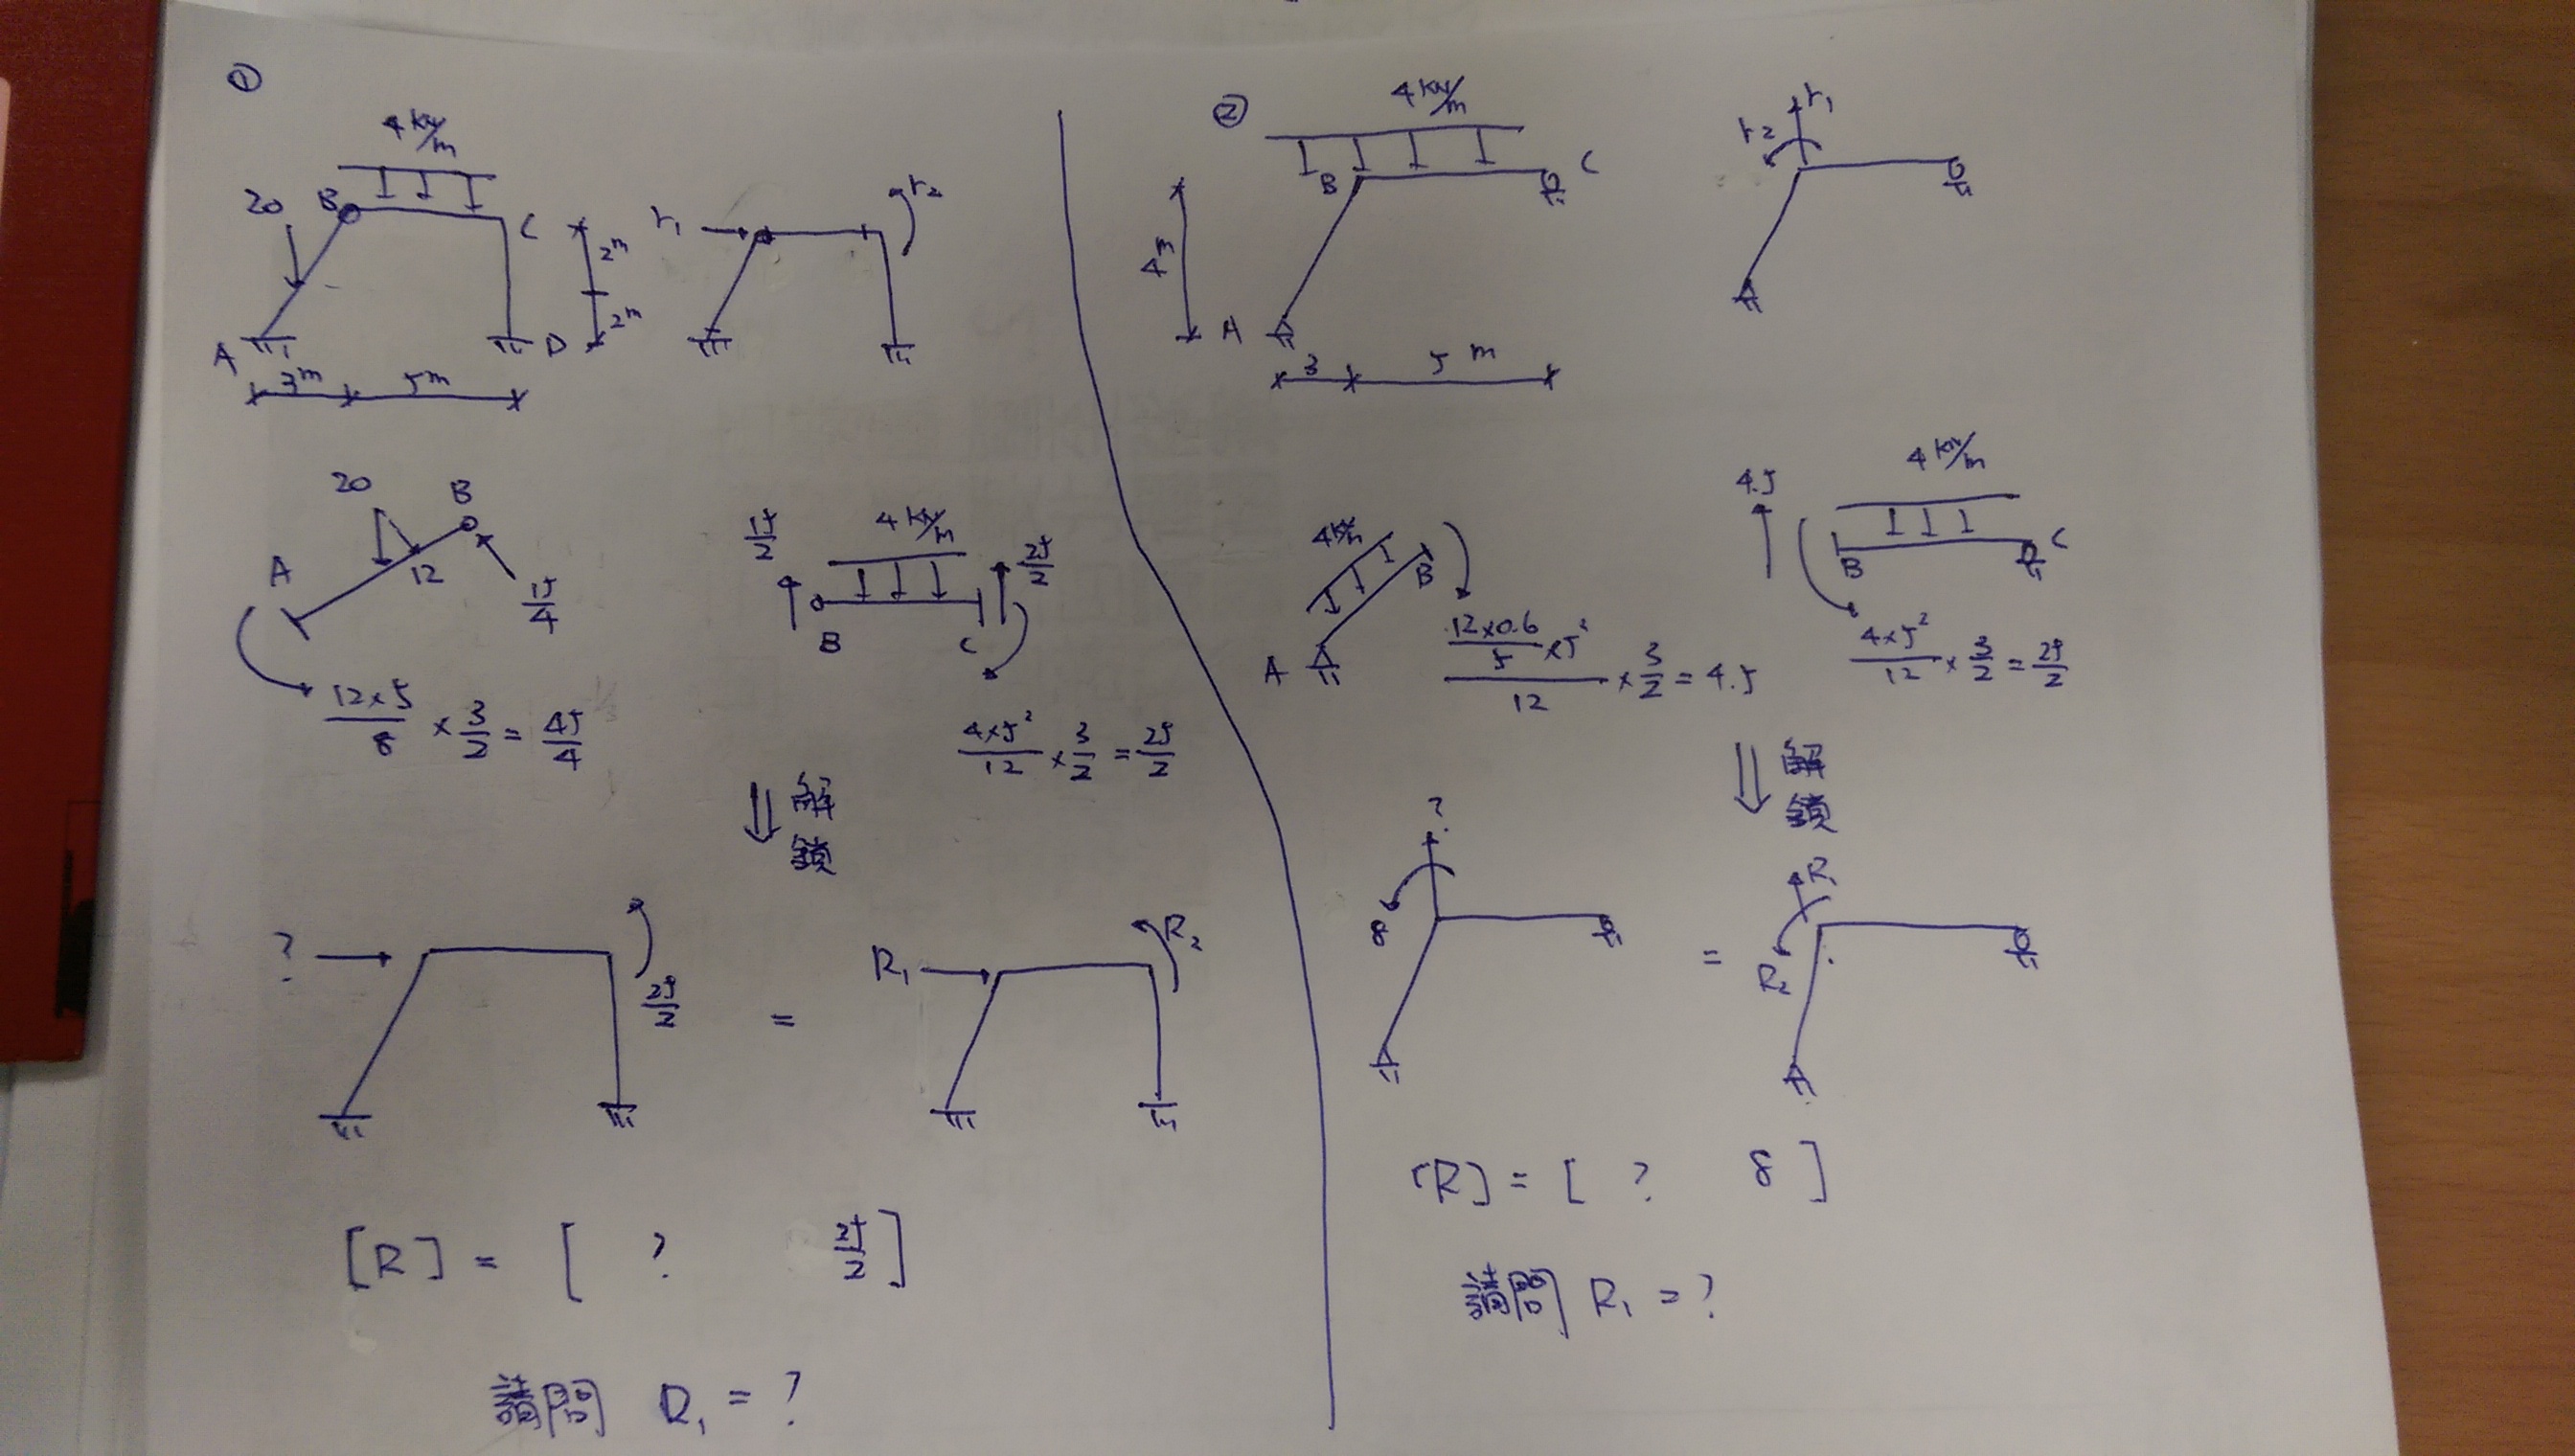 ①
4 kN/m
20 B C
2m
2m
A D
3m 5m
r1 r2
20 B
A 12
15/4
12×5/8 × 3/2 = 45/4
15/2 4 kN/m 25/2
B C
4×5²/12 × 3/2 = 25/2
解
鎖
? 25/2 = R1 R2
[R] = [ ? 25/2 ]
請問 R1 = ?
②
4 kN/m
B C
4m
A
3 5 m
r2 r1
4 kN/m
B
A
12×0.6/5 ×5²/12 × 3/2 = 4.5
4.5 4 kN/m
B C
4×5²/12 × 3/2 = 25/2
解
鎖
?
8 = R1
R2
[R] = [ ? 8 ]
請問 R1 = ?